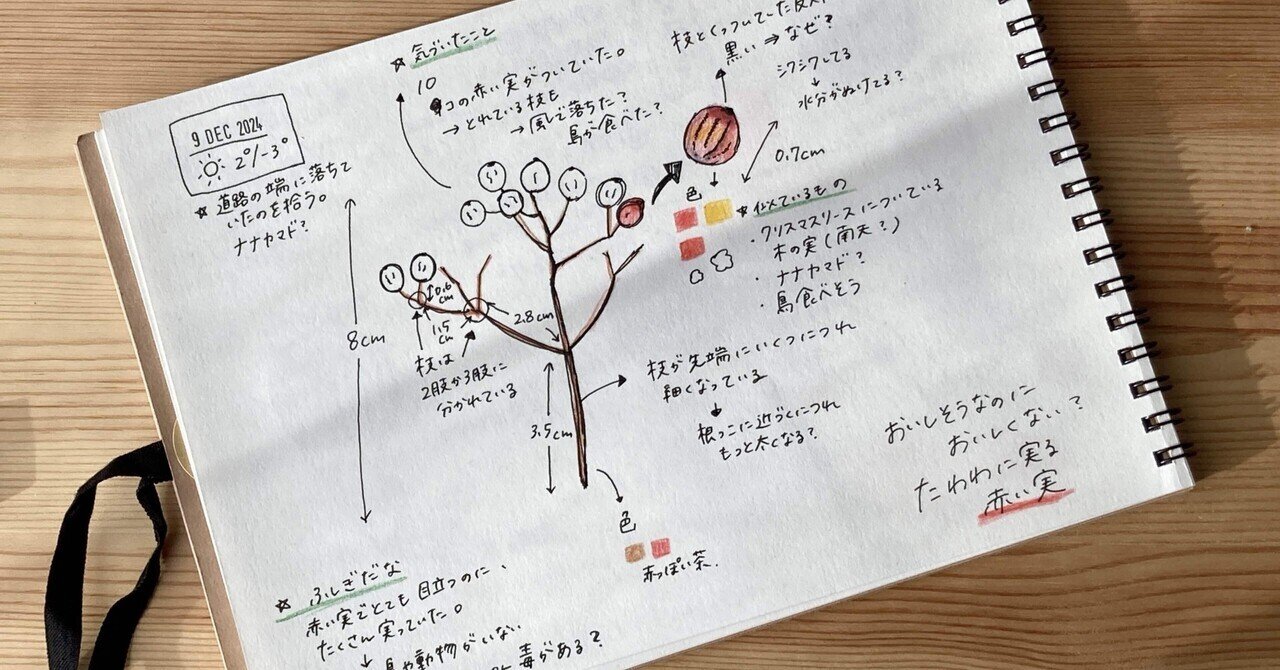 9 DEC 2024
2°/-3°
☆ 道路の端に落ちて
いたのを拾う。
ナナカマド?
☆ 気づいたこと
10
コの赤い実がついていた。
→ とれている枝も
→ 風で落ちた?
鳥が食べた?
枝とくっついていた
黒い ⇒ なぜ?
シワシワしてる
↓
水分がぬけてる?
0.7cm
色
☆ 似ているもの
・クリスマスリースについている
木の実(南天?)
・ナナカマド?
・鳥食べそう
8cm
0.6cm
1.5cm
2.8cm
枝は
2肢か3肢に
分かれている
3.5cm
枝が先端にいくにつれ
細くなっている
↓
根っこに近づくにつれ
もっと太くなる?
色
赤っぽい茶.
おいしそうなのに
おいしくない?
たわわに実る
赤い実
☆ ふしぎだな
赤い実でとても目立つのに、
たくさん実っていた。
↓
や動物がいない
毒がある?